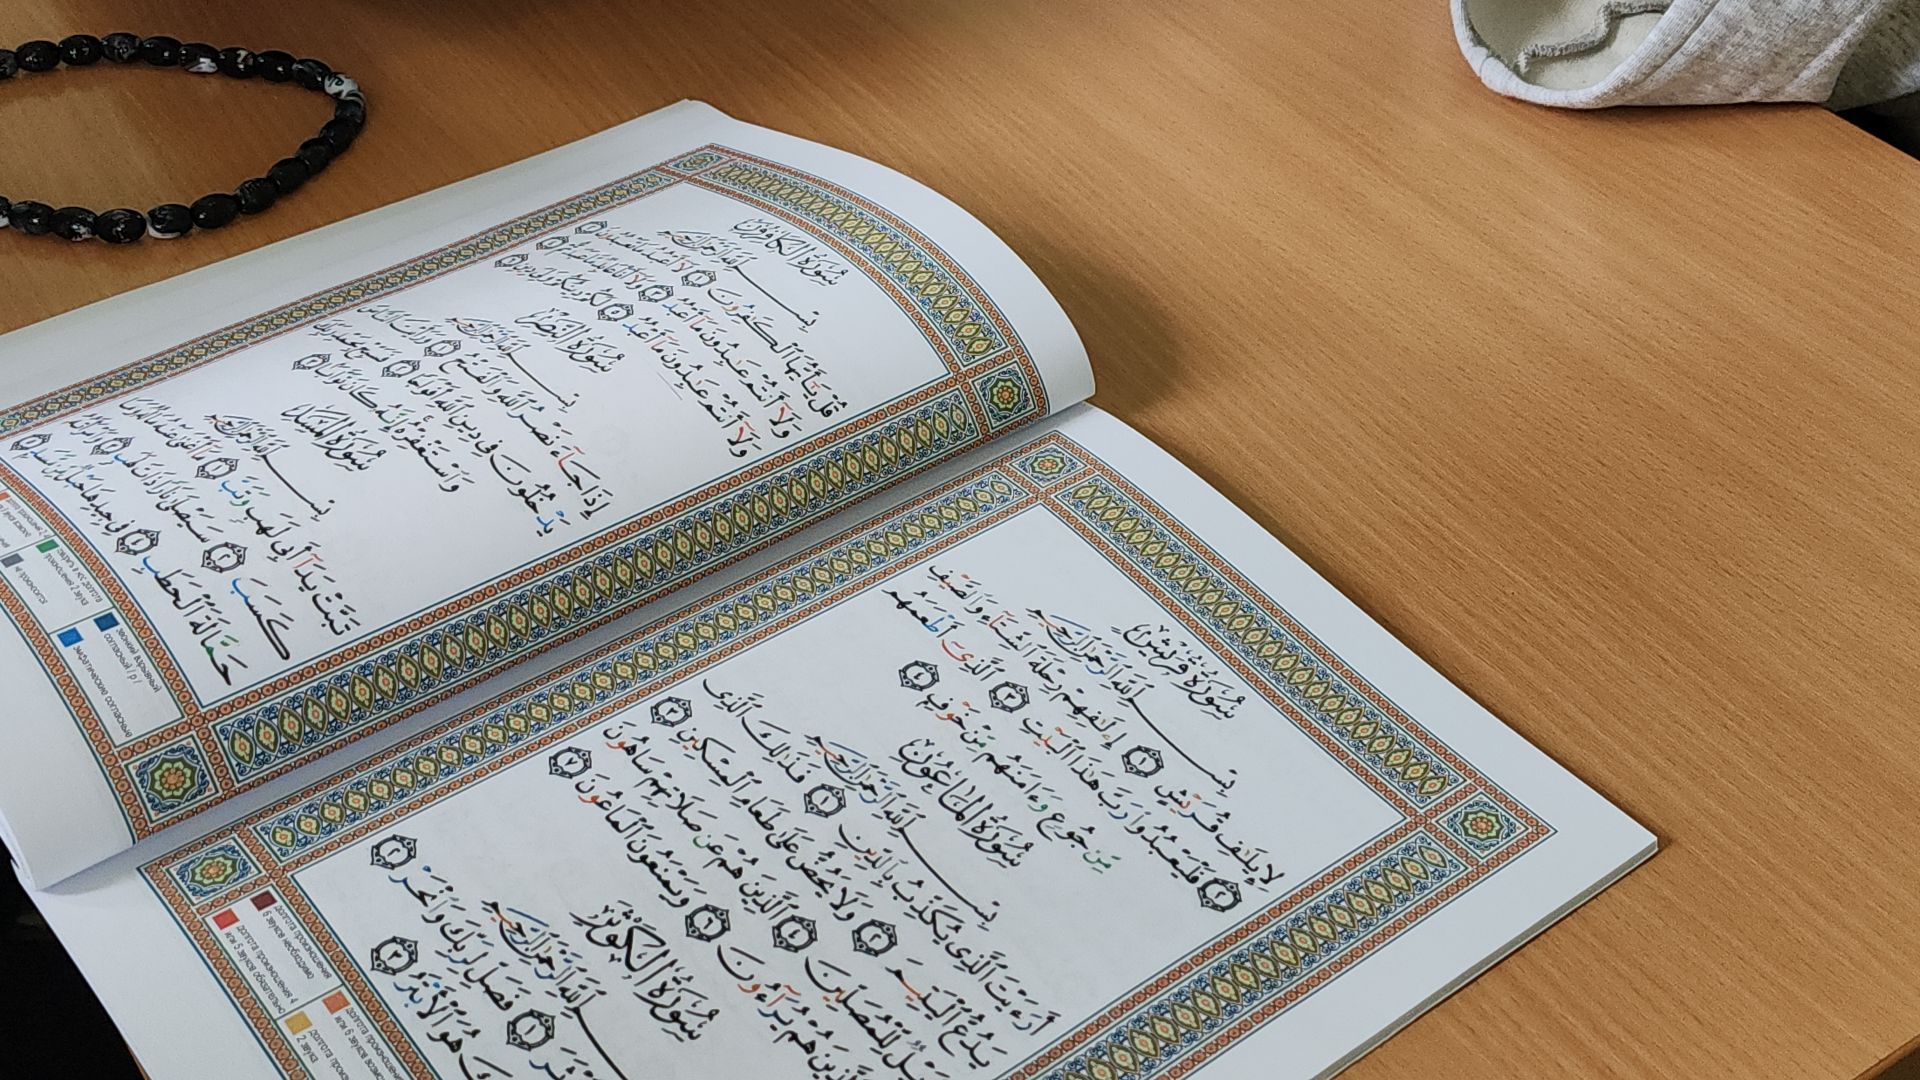 سُورَةُ قُرَيْشٍ
بِسْمِ ٱللَّهِ ٱلرَّحْمَٰنِ ٱلرَّحِيمِ
لِإِيلَٰفِ قُرَيْشٍ ١ إِۦلَٰفِهِمْ رِحْلَةَ ٱلشِّتَآءِ وَٱلصَّيْفِ
٢ فَلْيَعْبُدُوا۟ رَبَّ هَٰذَا ٱلْبَيْتِ ٣ ٱلَّذِىٓ أَطْعَمَهُم
مِّن جُوعٍ وَءَامَنَهُم مِّنْ خَوْفٍ ٤
سُورَةُ المَاعُونِ
بِسْمِ ٱللَّهِ ٱلرَّحْمَٰنِ ٱلرَّحِيمِ
أَرَءَيْتَ ٱلَّذِى يُكَذِّبُ بِٱلدِّينِ ١ فَذَٰلِكَ ٱلَّذِى
يَدُعُّ ٱلْيَتِيمَ ٢ وَلَا يَحُضُّ عَلَىٰ طَعَامِ ٱلْمِسْكِينِ ٣
لِّلْمُصَلِّينَ ٤ ٱلَّذِينَ هُمْ عَن صَلَاتِهِمْ سَاهُونَ
هُمْ يُرَآءُونَ ٦ وَيَمْنَعُونَ ٱلْمَاعُونَ ٧
سُورَةُ الكَوْثَرِ
بِسْمِ ٱللَّهِ ٱلرَّحْمَٰنِ ٱلرَّحِيمِ
١ فَصَلِّ لِرَبِّكَ وَٱنْحَرْ ٢
هُوَ ٱلْأَبْتَرُ ٣
долгота произношения
6 звуков необходимо
долгота произношения 4
или 5 звуков обязательны
سُورَةُ الكَافِرُونَ
بِسْمِ ٱللَّهِ ٱلرَّحْمَٰنِ ٱلرَّحِيمِ
قُلْ يَٰٓأَيُّهَا ٱلْكَٰفِرُونَ ١ لَآ أَعْبُدُ مَا تَعْبُدُونَ ٢
وَلَآ أَنتُمْ عَٰبِدُونَ مَآ أَعْبُدُ ٣ وَلَآ أَنَا۠ عَابِدٌ مَّا عَبَدتُّمْ ٤
وَلَآ أَنتُمْ عَٰبِدُونَ مَآ أَعْبُدُ ٥ لَكُمْ دِينُكُمْ وَلِىَ دِينِ ٦
سُورَةُ النَّصْرِ
بِسْمِ ٱللَّهِ ٱلرَّحْمَٰنِ ٱلرَّحِيمِ
إِذَا جَآءَ نَصْرُ ٱللَّهِ وَٱلْفَتْحُ ١ وَرَأَيْتَ ٱلنَّاسَ
يَدْخُلُونَ فِى دِينِ ٱللَّهِ أَفْوَاجًا ٢ فَسَبِّحْ بِحَمْدِ رَبِّكَ
وَٱسْتَغْفِرْهُ إِنَّهُۥ كَانَ تَوَّابًۢا ٣
سُورَةُ المَسَدِ
بِسْمِ ٱللَّهِ ٱلرَّحْمَٰنِ ٱلرَّحِيمِ
تَبَّتْ يَدَآ أَبِى لَهَبٍ وَتَبَّ ١ مَآ أَغْنَىٰ عَنْهُ مَالُهُۥ وَمَا
كَسَبَ ٢ سَيَصْلَىٰ نَارًا ذَاتَ لَهَبٍ ٣ وَٱمْرَأَتُهُۥ
حَمَّالَةَ ٱلْحَطَبِ ٤ فِى جِيدِهَا حَبْلٌ مِّن مَّسَدٍۭ ٥
звонкий взрывный
согласный / р /
эмфатические согласные
произношения 2 звука